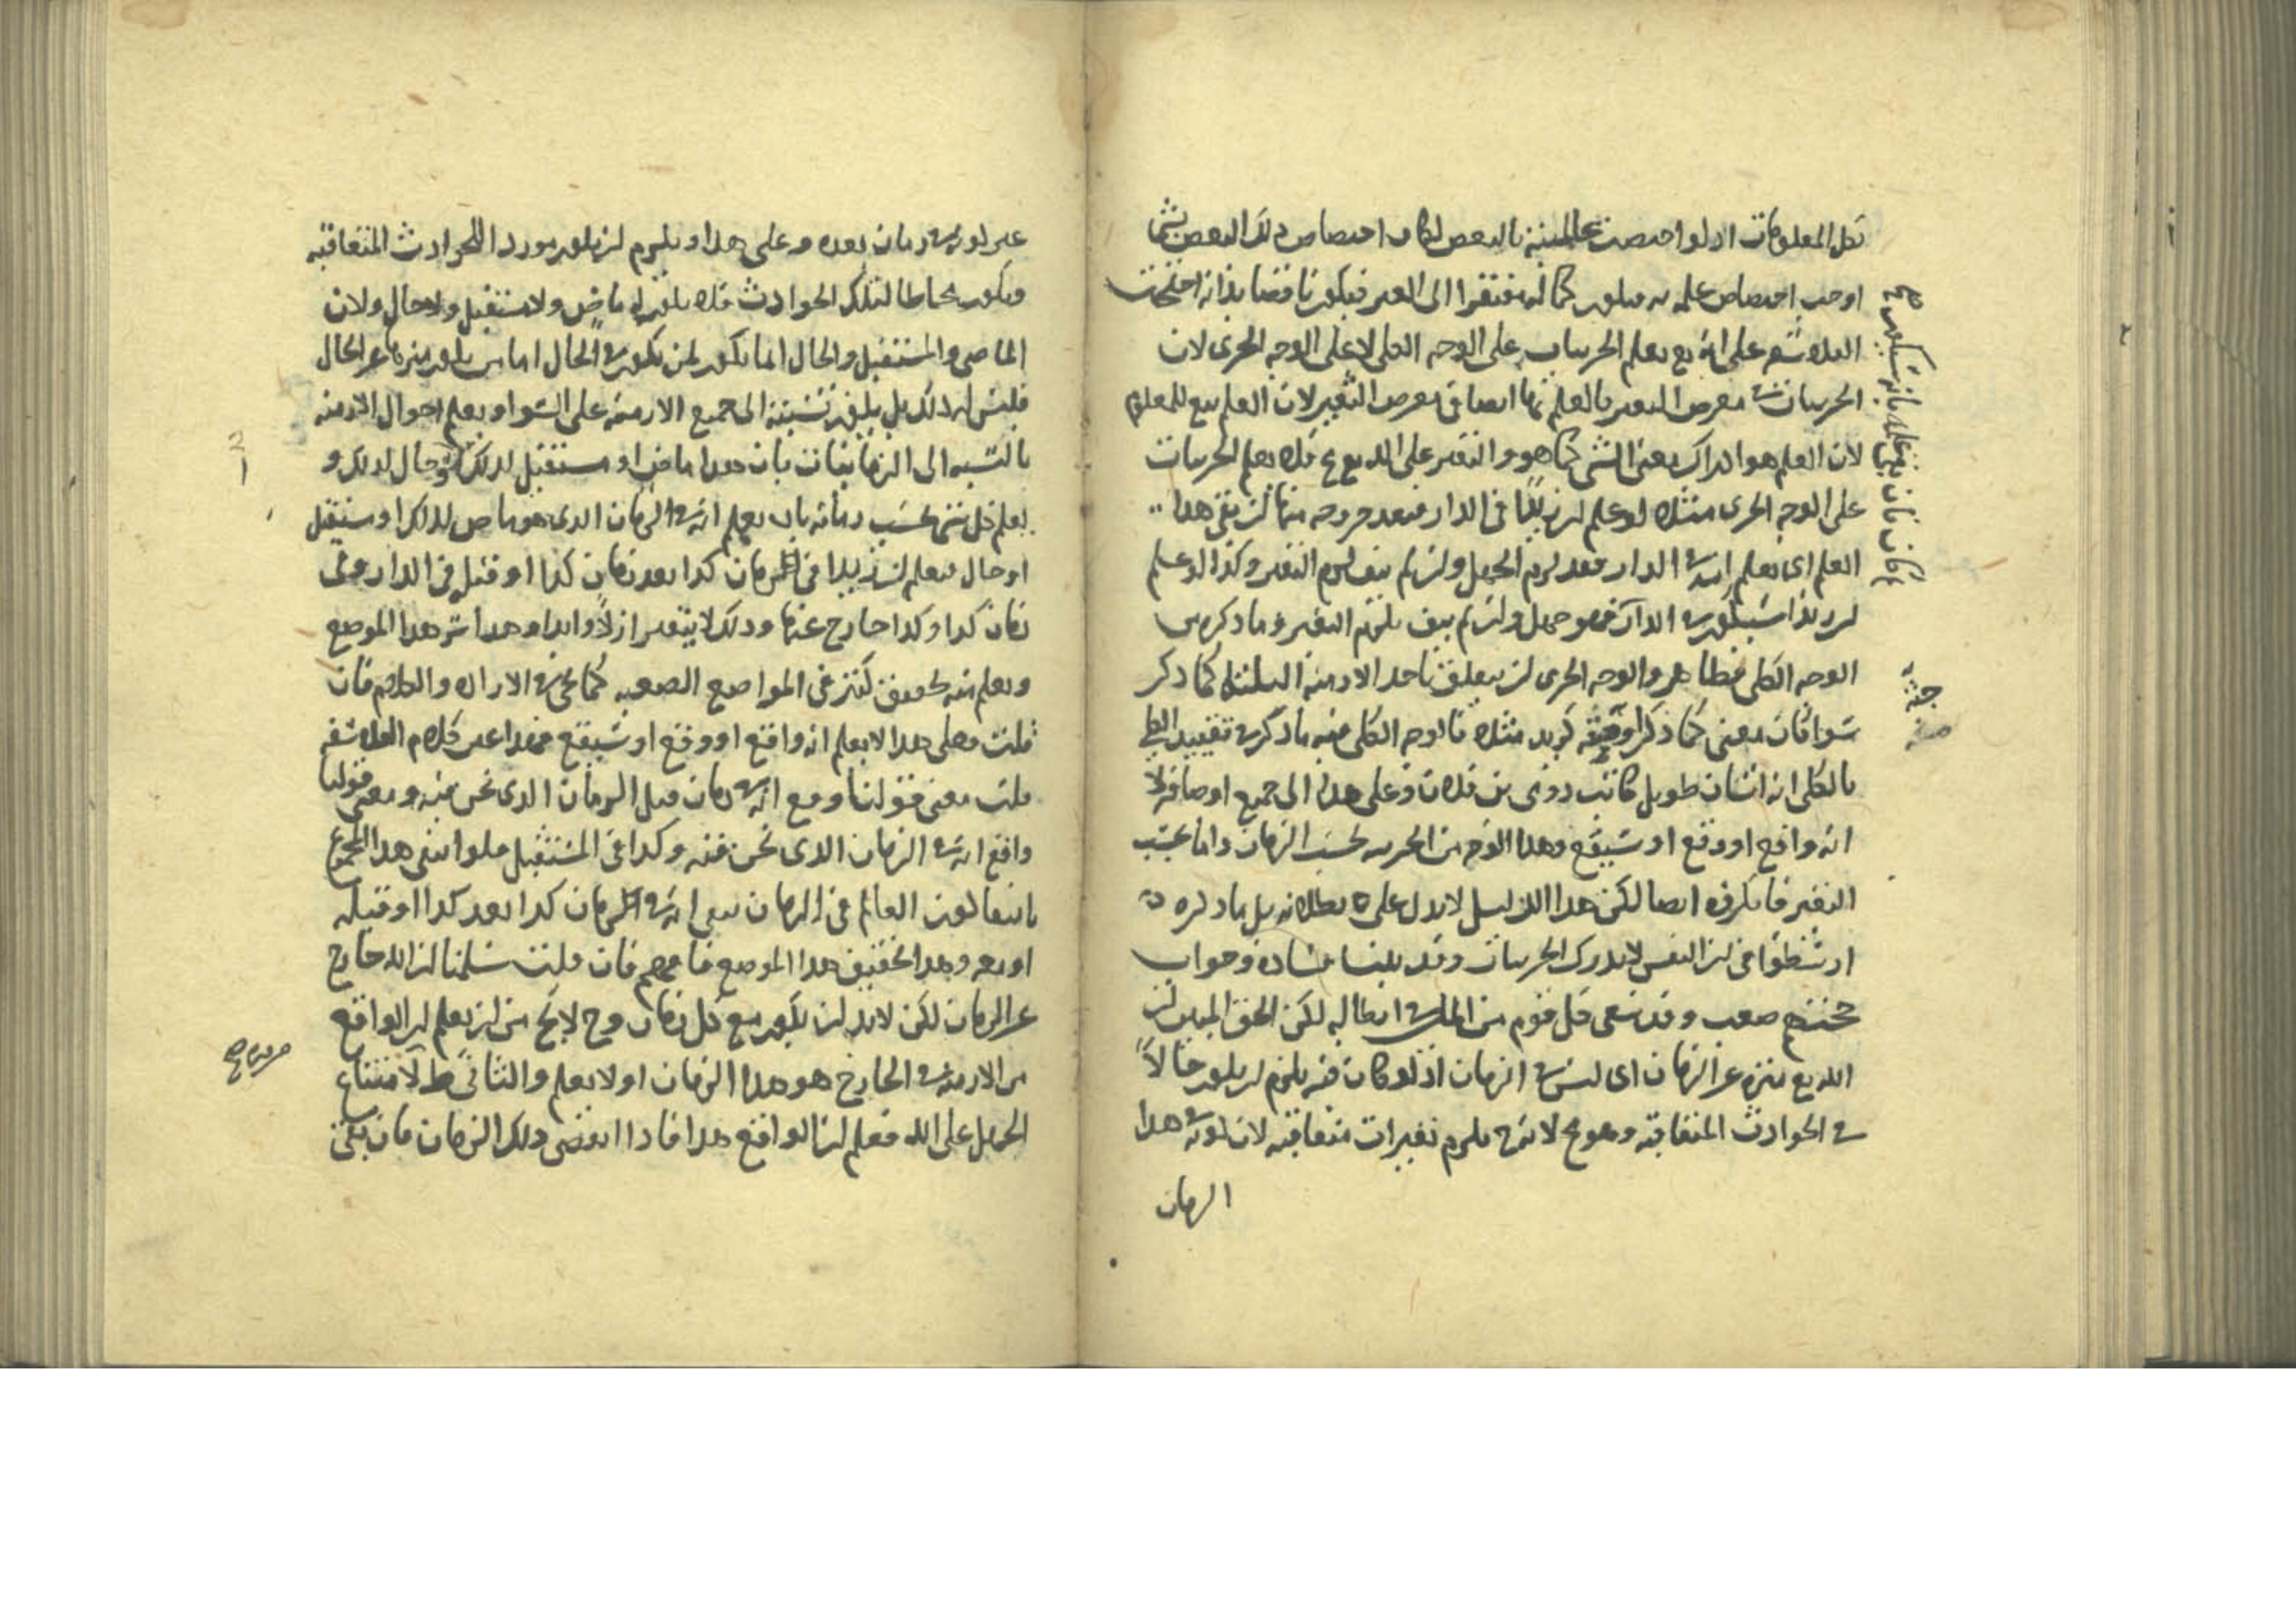 بكل المعلومات اذ لو اختصت عالميته بالبعض لكان اختصاص ذلك البعض بشئ ما
اوجب اختصاص علمه به فيكون كماله مفتقرا الى الغير فيكون ناقصا بذاته احتجت
الفلاسفة على انه تع يعلم الجزييات على الوجه الكلى لا على الوجه الجزى لان
الجزييات فى معرض التغير فالعلم بها ايضا فى معرض التغير لان العلم تبع للمعلوم
لان العلم هو ادراك معنى الشى كما هو والتغير على الله تع مح فلا يعلم الجزييات
على الوجه الجزى مثلا لو علم ان زيدا فى الدار فبعد خروجه منها ان بقى هذا
العلم اى يعلم انه فى الدار فقد لزم الجهل وان لم يبق لزم التغير وكذا لو علم
ان زيدا سيكون فى الدار فهو جهل وان لم يبق يلزم التغير وما ذكر من
الوجه الكلى والوجه الجزى ان يتعلق باحد الازمنة الثلثة كما ذكر
سوا كان معنى كما ذكر او كزيد مثلا فالوجه الكلى فيه ما ذكر من تقييد الكلى
بالكلى انه انسان طويل كاتب رومى بن فلان وعلى هذا الى جميع اوصافه لا
انه واقع او وقع او سيقع وهذا الوجه من الجزييه بحسب الزمان واما بحسب
التغير فما نكرره ايضا لكن هذا الدليل لا يدل على بطلانه بل ما ذكره
ارسطو فى ان النفس لا يدرك الجزييات وقد بينا فساده وجواب
حجتهم صعب وقد سعى كل قوم من الملل فى ابطاله لكن الحق المبين ان
الله تع منزه عن الزمان اى ليس فى الزمان اذ لو كان فيه يلزم ان يكون حالا
فى الحوادث المتعاقبة وهو مح لانه ح يلزم تغيرات متعاقبة لان كونه فى هذا
الزمان
صح
غير كونه فى زمان بعده وعلى هذا ويلزم ان يكون موردا للحوادث المتعاقبه
ويكون محاطا لتلك الحوادث فلا يكون له ماض ولا مستقبل ولا حال ولان
الماضى والمستقبل والحال انما يكون لمن يكون فى الحال اما من يكون منزها عن الحال
فليس له ذلك بل يكون نسبته الى جميع الازمنة على السوا ويعلم احوال الازمنه
بالنسبه الى الزمانيات بان هذا ماض او مستقبل لذلك او حال لذلك و
يعلم كل شى بحسب زمانه بان يعلم انه فى الزمان الذى هو ماض لذلك او مستقبل
او حال فيعلم ان زيدا فى الزمان كذا بعد زمان كذا او قبله فى الدار وفى
زمان كذا وكذا خارج عنها وذلك لا يتغير ازلا وابدا وهذا سر هذا الموضع
ويعلم منه تحقيق كثير فى المواضع الصعبه كما يجى فى الاراده والكلام فان
قلت فعلى هذا لا يعلم انه واقع او وقع او سيقع فهذا عين كلام الفلاسفه
قلت معنى قولنا وقع انه فى زمان قبل الزمان الذى نحن فيه ومعنى قولنا
واقع انه فى الزمان الذى نحن فيه وكذا فى المستقبل فلو انتفى هذا المجموع
بانتفا كون العالم فى الزمان يبقى انه فى الزمان كذا بعد كذا او قبله
او معه وهذا تحقيق هذا الموضع فافهم فان قلت سلمنا ان الله خارج
عن الزمان لكن لا بد ان يكون مع كل زمان وح لا يخ من ان يعلم ان الواقع
من الازمنه فى الخارج هو هذا الزمان او لا يعلم والثانى ط لامتناع
الجهل على الله فعلم ان الواقع هذا فاذا انقضى ذلك الزمان فان بقى